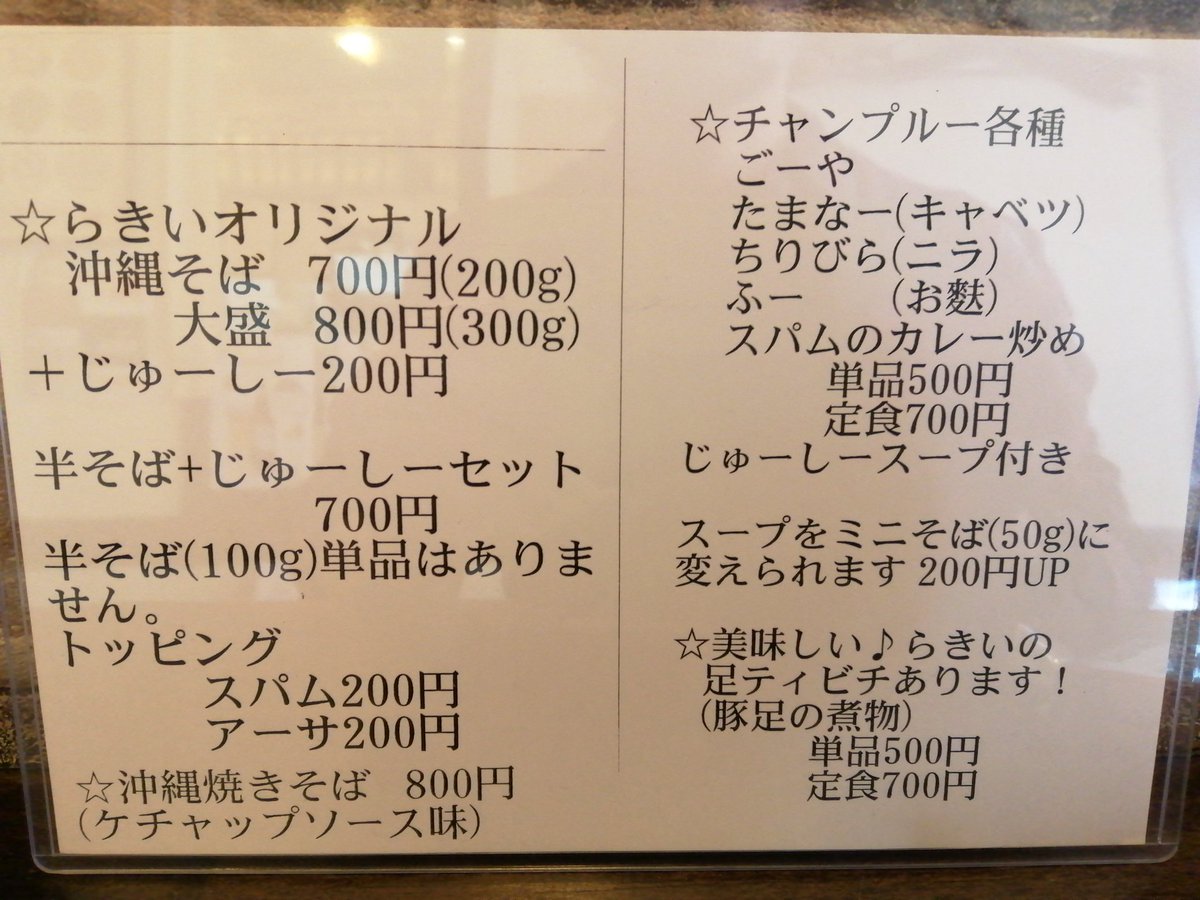 ☆らきいオリジナル
沖縄そば 700円(200g)
大盛 800円(300g)
+じゅーしー200円
半そば+じゅーしーセット
700円
半そば(100g)単品はありま
せん。
トッピング
スパム200円
アーサ200円
☆沖縄焼きそば 800円
(ケチャップソース味)
☆チャンプルー各種
ごーや
たまなー(キャベツ)
ちりびら(ニラ)
ふー (お麩)
スパムのカレー炒め
単品500円
定食700円
じゅーしースープ付き
スープをミニそば(50g)に
変えられます 200円UP
☆美味しい♪らきいの
足ティビチあります!
(豚足の煮物)
単品500円
定食700円